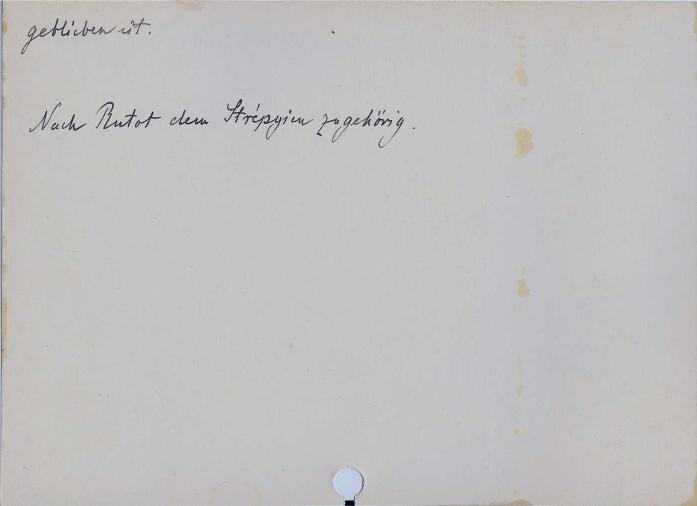 geblieben ist.
Nach Rutot dem Strépyien zugehörig.